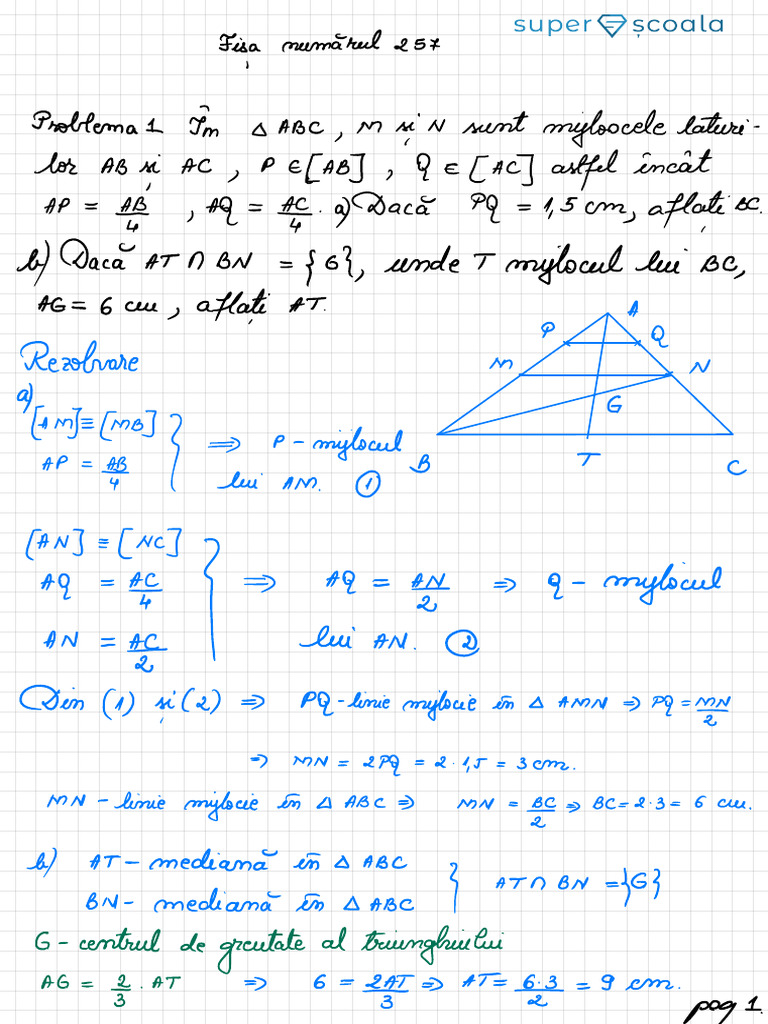 super școala
Fișa numărul 257
Problema 1 În △ ABC, M și N sunt mijloocele laturi-
lor AB și AC, P ∈ [AB], Q ∈ [AC] astfel încât
AP = AB/4, AQ = AC/4. a) Dacă PQ = 1,5 cm, aflați BC.
b) Dacă AT ∩ BN = {G}, unde T mijlocul lui BC,
AG = 6 cm, aflați AT.
Rezolvare
a)
[AM] ≡ [MB]
AP = AB/4
⇒ P - mijlocul
lui AM. ①
A
P
Q
M
N
G
B
T
C
[AN] ≡ [NC]
AQ = AC/4 ⇒ AQ = AN/2 ⇒ Q - mijlocul
AN = AC/2 lui AN. ②
Din (1) și (2) ⇒ PQ - linie mijlocie în △ AMN ⇒ PQ = MN/2
⇒ MN = 2PQ = 2 · 1,5 = 3 cm.
MN - linie mijlocie în △ ABC ⇒ MN = BC/2 ⇒ BC = 2·3 = 6 cm.
b) AT - mediană în △ ABC
BN - mediană în △ ABC
AT ∩ BN = {G}
G - centrul de greutate al triunghiului
AG = 2/3 · AT ⇒ 6 = 2AT/3 ⇒ AT = 6·3/2 = 9 cm.
pag 1.